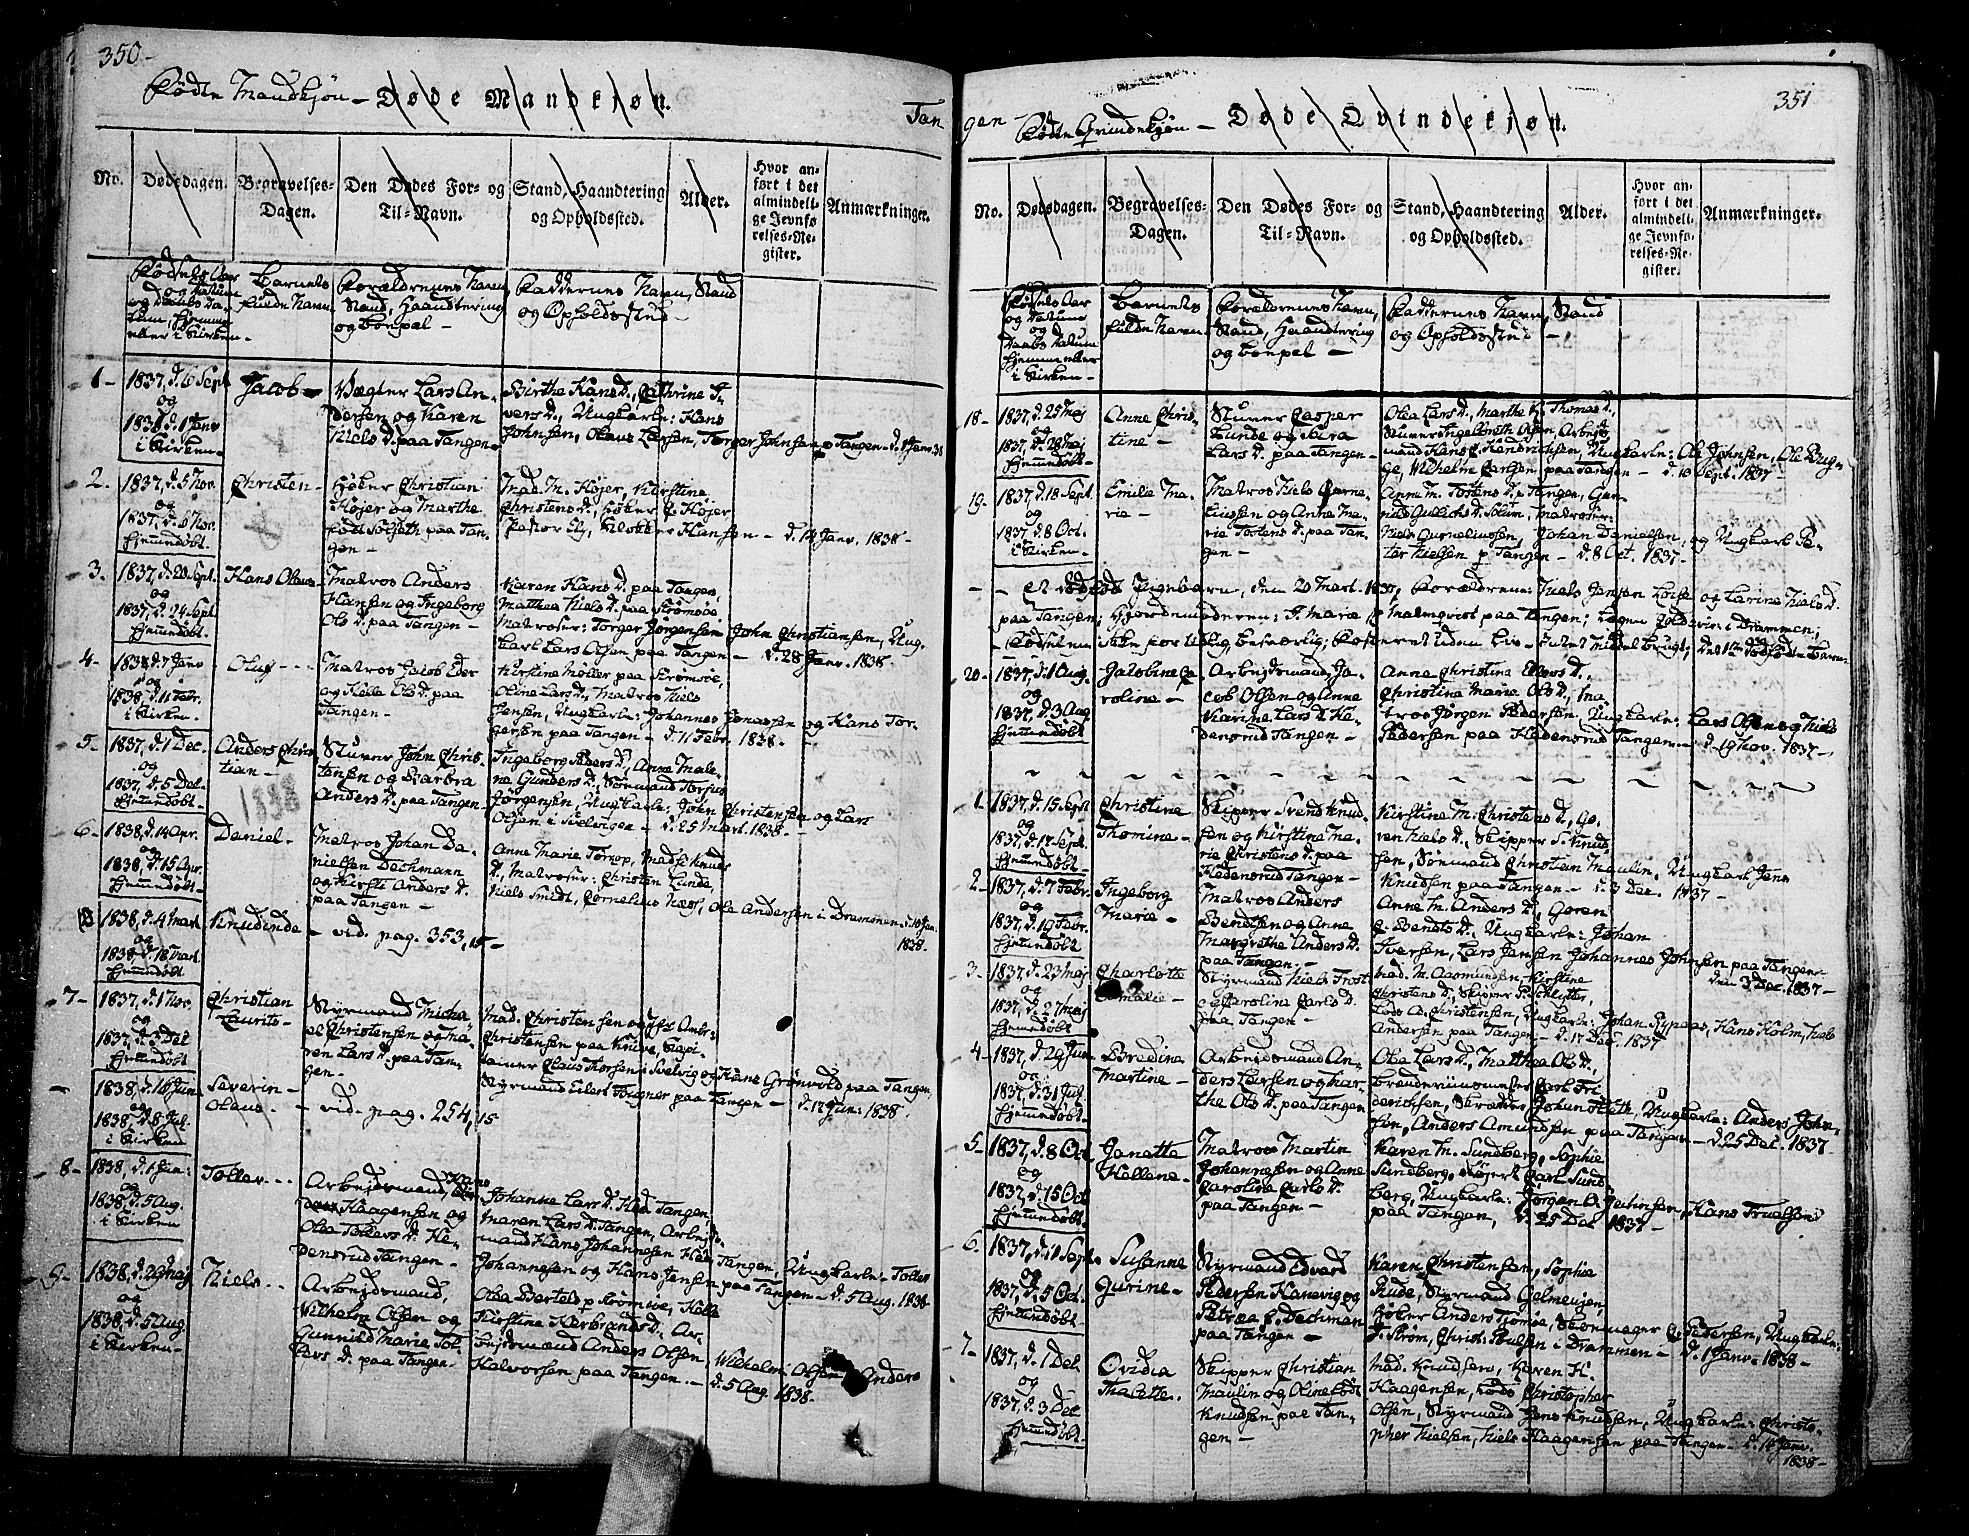 350-
Fødte Mandkjøn - Døde Mandkjøn.
Tan
No.
Dødsdagen.
Begravelses-
Dagen.
Den Dødes For- og
Til-Navn.
Stand, Haandtering
og Opholdssted.
Alder.
Hvor an-
ført i det
almindeli-
ge Jevnfø-
relses-Re-
gister.
Anmærkninger.
Fødsels Aar
og Datum
og Daabs Da-
tum, hjemme
eller i Kirken -
Barnets
fulde Navn.
Forældrenes Navn,
Stand, Haandtering
og Bopæl -
Faddernes Navn, Stand
og Opholdssted -
1-
1837, d. 6 Sept.
og
1838 d. 1 Janv
i Kirken -
Jacob -
Vægter Lars An-
dersen og Karen
Niels D. paa Tangen -
Birthe Hans D., Cathrine I-
vers D., Ungkarle: Hans
Johnsen, Olaus Larsen, Torger Johnsen p Tangen - d. 1 Janv. 38
2-
1837, d. 5 Nov.
og
1837, d. 6 Nov.
hjemmedøbt.
Christen -
Høker Christian
Højer og Marthe
født Solseth paa Tan-
gen -
Mad. M. Højer, Kirstine
Christens D., Høker J. Højer
Pastor Ely, Klokker Hansen - d. 14 Janv. 1838 -
3.
1837, d. 20 Sept.
og
1837, d. 24 Sept.
hjemmedøbt.
Hans Olaus -
Matros Anders
Hansen og Ingeborg
Ols D. paa Tangen -
Karen Hans D. paa Tangen,
Matthea Niels D. paa Strømsøe
Matroser: Torger Jørgensen John Christiansen, Ung-
karl Lars Olsen paa Tangen - d. 28 Janv. 1838 -
4-
1838 d. 7 Janv
og
1838, d. 11 Febr.
i Kirken -
Oluf - - -
Matros Jacob Eder
og Helle Ols D. paa
Tangen -
Kirstine Møller paa Strømsøe,
Oline Lars D., Matros Niels
Jensen, Ungkarle: Johannes Jonassen og Hans Tor-
gersen paa Tangen - d. 11 Febr. 1838 -
5-
1837, d. 1 Dec.
og
1837, d. 5 Dec.
hjemmedøbt -
Anders Chris-
tian -
1838
Stuver John Chris-
tensen og Barbra
Anders D. paa Tangen -
Ingeborg Peders D., Anne Male-
ne Gunders D., Sømand Torjus
Jørgensen, Ungkarle: John Christensen og Lars
Olsen i Svelvigen - d. 25 Mart. 1838. -
6-
1838, d. 14 Apr.
og
1838, d. 15 Apr.
hjemmedøbt -
Daniel -
Matros Johan Da-
nielsen Dechmann
og Kirsti Anders D.
paa Tangen -
Anne Marie Torrop, Madse Knuds
D., Matroser: Christen Lunde,
Niels Smidt, Cornelius Næss, Ole Andersen i Drammen, d. 10 Jun:
1838.
1838, d. 4 Mart.
og
1838 d. 18 Mart.
hjemmedøbt
Knudinde
- vid. pag. 353, 15 -
7-
1837, d. 1 Nov.
og
1837, d. 3 Dec
hjemmedøbt
Christian
Laurits -
Styrmand Micha-
el Christensen og Ma-
ren Lars D. paa Tan-
gen -
Mad. Christensen og Jfr Ambr-
Christensen paa Knive, Capi-
tainer Claus Thorsen i Svelvig og Hans Grønvold paa Tangen,
Styrmand Eilert Fougner paa Tangen - d. 17 Jun: 1838.
-
1838, d. 16 Jun:
og
1838, d. 8 Jul.
i Kirken
Severin -
Olaus -
- vid. pag. 254, 15
8-
1838 d. 1 Jun:
og
1838, d. 5 Aug.
i Kirken
Toller - -
Arbejdsmand, Hans
Haagensen og
Olea Tollers D. He-
densrud Tangen -
Johanne Lars D. Hed. Tangen,
Maren Lars D. Tangen, Arbejds-
mand Hans Johannesen Hed. Tangen, Ungkarle: Toller
Johannesen og Hans Jensen paa Tangen - d. 5 Aug. 1838 -
9-
1838, d. 20 Maj
og
1838, d. 5 Aug.
i Kirken -
Niels - -
Arbejdsmand,
Wilhelm Olsen og
Gunnild Marie Tol-
lers D. paa Tangen -
Olea Bertels p Strømsøe, Helle
Kirstine Herbrands D., Ar-
bejdsmand Anders Olsen, Wilhelm Olsen, Anders
Halvorsen paa Tangen - d. 5 Aug. 1838 -
351
gen - Fødte Qvindekjøn - Døde Qvindekjøn.
No.
Dødsdagen.
Begravelses-
Dagen.
Den Dødes For- og
Til-Navn.
Stand, Haandtering
og Opholdssted.
Alder.
Hvor an-
ført i det
almindeli-
ge Jevnfø-
relses-Re-
gister.
Anmærkninger.
Fødsels Aar
og Datum
og
Daabs Datum
hjemme eller
i Kirken -
Barnets
fulde Navn
Forældrenes Navn,
Stand, Haandtering
og Bopæl -
Faddernes Navn, Stand
og Opholdssted -
18-
1837 d. 25 Maj
og
1837, d. 28 Maj
hjemmedøbt -
Anne Chris-
tine -
Stuver Casper
Lunde og Sara
Lars D. paa Tangen -
Olea Lars D., Marthe K. Thomas D.,
Stuver Ingebreth Olsen, Arbejds-
mand Hans C. Hendrichsen, Ungkarle: Ole Johnsen, Ole Brug-
ge, Wilhelm Carlsen paa Tangen - d. 10 Sept. 1837
19-
1837, d. 18 Sept.
og
1837 d. 8 Oct.
i Kirken -
Emilie Ma-
rie -
Matros Niels Corne-
liussen og Anne Ma-
rie Tostens D. paa Tan-
gen -
Anne M. Tostens D. p Tangen, Gun-
nild Gullichs D. Solum, Matroser:
Niels Corneliussen, Johan Danielsen, og Ungkarl Pe-
ter Nielsen p Tangen - d. 8 Oct. 1837 -
- - et dødfød Pigebarn, den 20 Mart. 1837, Forældrene: Niels Jansen Loise og Larine Niels D.
paa Tangen; Gjordemoderen: J. Marie Malmqvist paa Tangen; Lægen Holdevin i Drammen;
- Fødselen ikke for Utlig besværlig; Fosteret uden Liv - Intet Middel brugt; det 1ste dødfødte Barn -
20-
1837, d. 1 Aug.
og
1837, d. 3 Aug.
hjemmedøbt
Jacobine Ca-
roline -
Arbejdsmand, Ja-
cob Olsen og Anne
Karine Lars D. He-
densrud Tangen -
Anne Christine Ellevs D.,
Christine Marie Ols D., Ma-
tros Jørgen Pedersen, Ungkarle: Lars Olsen og Niels
Pedersen paa Hedensrud Tangen - d. 19 Nov. 1837 -
1.
1837, d. 15 Sept
og
1837, d. 17 Sept.
hjemmedøbt
Christine
Thomine -
Skipper Svend Knud-
sen og Kirstine Ma-
rie Christens D. paa
Hedensrud Tangen -
Kirstine M. Christens D., Go-
ren Niels D., Skipper S. Knud-
sen, Sømand Christian Maulin, Ungkarl Jens
Knudsen paa Tangen - d. 3 Dec. 1837 -
2-
1837 d. 7 Febr.
og
1837, d. 19 Febr.
hjemmedøbt
Ingeborg
Marie -
Matros Anders
Bendtsen og Anne
Margrethe Anders D.
paa Tangen -
Anne M. Anders D., Goren
E. Bendts D., Ungkarle: Johan
Iversen, Lars Jansen Johannes Johnsen paa Tangen -
den 3 Dec. 1837 -
3-
1837 d. 23 Maj
og
1837, d. 27 Maj
hjemmedøbt
Charlotte
Amalie -
Styrmand Niels Frost
og Caroline Carls D.
paa Tangen -
Mad. M. Aasmundsen, Kirstine
Christens D., Skipper P. Schlytter,
Lars A. Christensen, Ungkarle: Johan Rypaas, Hans Holm, Niels
Andersen paa Tangen - d. 17 Dec. 1837
4-
1837, d. 29 Jun:
og
1837, d. 31 Jul.
hjemmedøbt
Bredine
Martine -
Arbejdsmand An-
ders Larsen og Mar-
the Ols D. paa Tangen
Olea Lars D., Matthea Ols D.,
Carl Fri-
derichsen, Skrædder Johan Fleth, Ungkarle: Anders John-
sen, Anders Amundsen paa Tangen - d. 25 Dec. 1837 -
5-
1837, d. 8 Oct
og
1837, d. 15 Oct
hjemmedøbt
Janette
Hellene -
Matros Martin
Johannesen og Anne
Caroline Carls D.
paa Tangen -
Karen M. Sundberg, Sophie
Sundberg, Carl Sund-
berg, Ungkarle: Jørgen A. Hans Truelsen
paa Tangen, d. 25 Dec 1837 -
6.
1837, d. 11 Sept.
og
1837, d. 5 Oct.
hjemmedøbt
Susanne
Gurine -
Styrmand Edvard
Pedersen Hanevig og
Petrea f. Dechman
paa Tangen -
Karen Christensen, Sophie
Rude, Styrmand Gelmeujen
Høker Anders Tjømøe, Skomager C. Pedersen, Ungkarle:
J. Strøm, Christ: Poulsen i Drammen - d. 1 Janv. 1838 -
7-
1837, d. 1 Dec
og
1837, d. 3 Dec
hjemmedøbt
Ovidia
Thalette.
Skipper Christian
Maulin og Oline født
Knudsen paa Tan-
gen -
Mad. Knudsen, Karen H.
Haagensen, Lods Christopher
Olsen, Styrmand Jens Knudsen, Ungkarle: Christo-
pher Nielsen, Niels Haagensen paa Tangen - d. 14 Janv.
1838 -